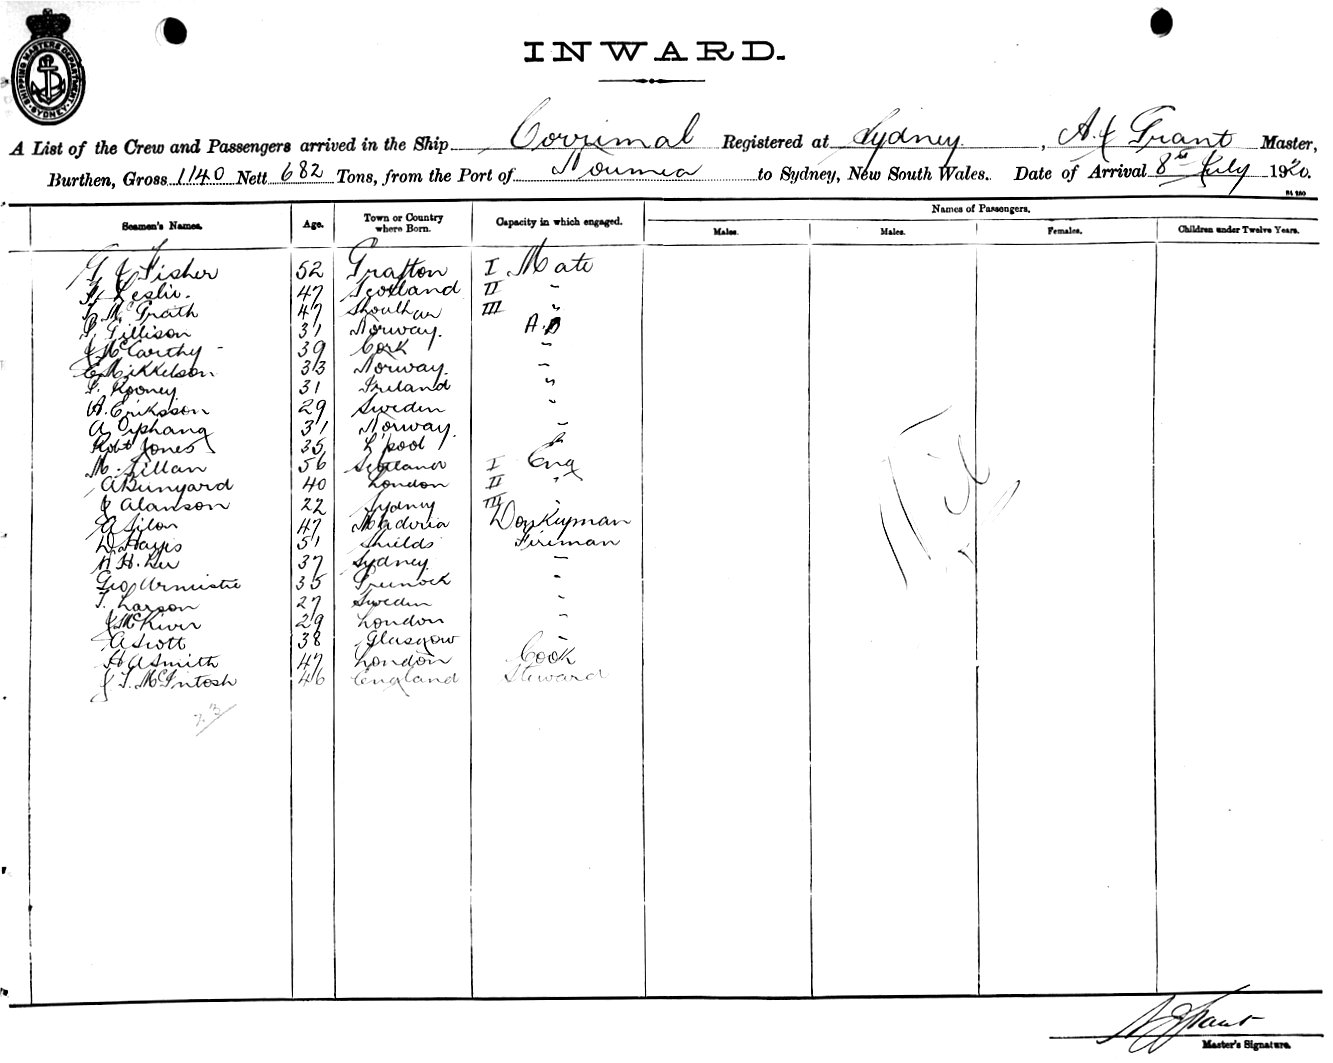 SHIPPING MASTERS DEPARTMENT SYDNEY
INWARD.
A List of the Crew and Passengers arrived in the Ship Corrimal Registered at Sydney, A J Grant Master,
Burthen, Gross 1140 Nett 682 Tons, from the Port of Noumea to Sydney, New South Wales. Date of Arrival 8th July 1920.
Names of Passengers.
Seamen's Names. Age. Town or Country where Born. Capacity in which engaged. Males. Males. Females. Children under Twelve Years.
G J Fisher 52 Grafton I Mate
Leslie. 47 Scotland II "
McGrath 47 III "
Gillison 31 Norway. A.B
J McCarthy - 39 Cork "
C Mikkelson 33 Norway. "
Rooney 31 Ireland "
A. Eriksson 29 Sweden "
A Orphang 31 Norway. "
Robt Jones 35 L'pool "
M. Lillan 56 Scotland I Eng
A Bunyard 40 London II "
J Alanson 22 Sydney III "
A Silon 47 Maderia Donkeyman
D. Hayes 51 Shields Fireman
A H. Lee 37 Sydney. "
Geo Urmistie 35 Greenock "
T. Larson 27 Sweden "
J McKiver 29 London "
A Scott 38 Glasgow "
H A Smith 47 London Cook
J T. McIntosh 46 England Steward
Nil
23
A J Grant
Master's Signature.